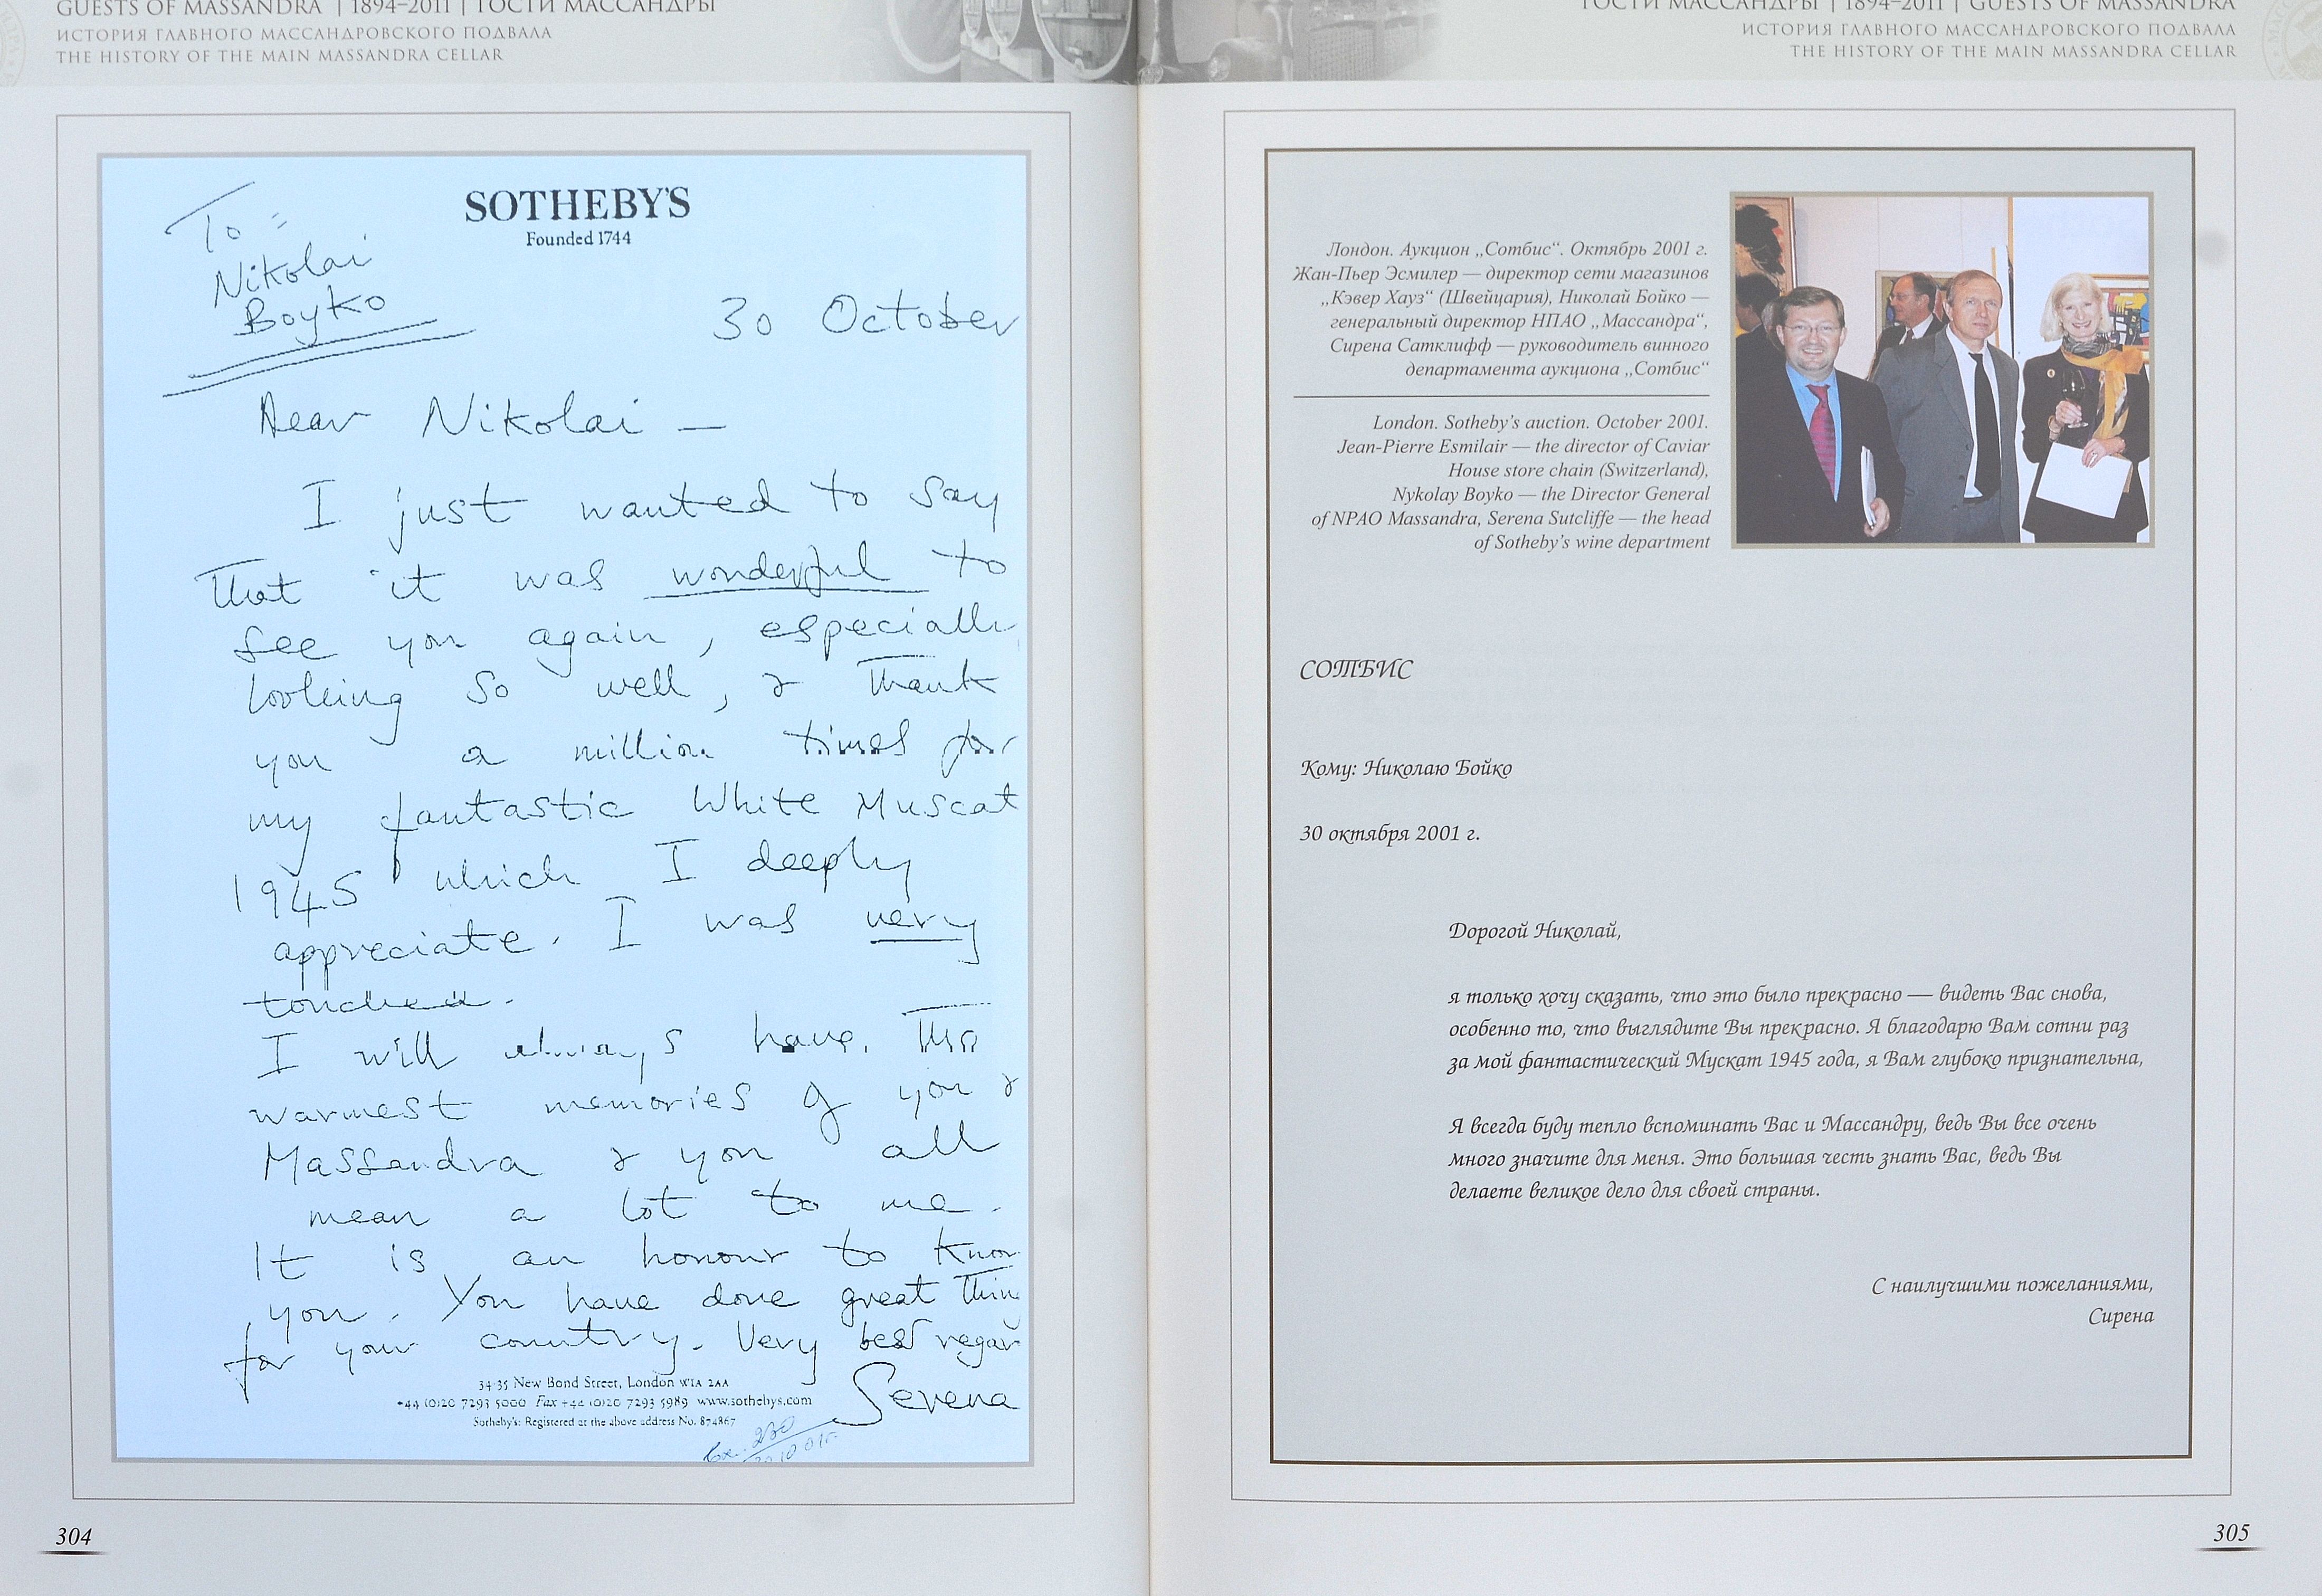 GUESTS OF MASSANDRA | 1894–2011 | ГОСТИ МАССАНДРЫ
ИСТОРИЯ ГЛАВНОГО МАССАНДРОВСКОГО ПОДВАЛА
THE HISTORY OF THE MAIN MASSANDRA CELLAR
SOTHEBY'S
Founded 1744
To =
Nikolai
Boyko
30 October
Dear Nikolai —
I just wanted to say
that it was wonderful to
see you again, especially
looking so well, & thank
you a million times for
my fantastic White Muscat
1945 which I deeply
appreciate. I was very
touched.
I will always have the
warmest memories of you &
Massandra & you all
mean a lot to me.
It is an honour to know
you. You have done great thin
for your country. Very best regar
Serena
34-35 New Bond Street, London W1A 2AA
+44 (0)20 7293 5000 Fax +44 (0)20 7293 5989 www.sothebys.com
Sotheby's: Registered at the above address No. 874867
304
ГОСТИ МАССАНДРЫ | 1894–2011 | GUESTS OF MASSANDRA
ИСТОРИЯ ГЛАВНОГО МАССАНДРОВСКОГО ПОДВАЛА
THE HISTORY OF THE MAIN MASSANDRA CELLAR
Лондон. Аукцион „Сотбис“. Октябрь 2001 г.
Жан-Пьер Эсмилер — директор сети магазинов
„Кэвер Хауз“ (Швейцария), Николай Бойко —
генеральный директор НПАО „Массандра“,
Сирена Сатклифф — руководитель винного
департамента аукциона „Сотбис“
London. Sotheby's auction. October 2001.
Jean-Pierre Esmilair — the director of Caviar
House store chain (Switzerland),
Nykolay Boyko — the Director General
of NPAO Massandra, Serena Sutcliffe — the head
of Sotheby's wine department
СОТБИС
Кому: Николаю Бойко
30 октября 2001 г.
Дорогой Николай,
я только хочу сказать, что это было прекрасно — видеть Вас снова,
особенно то, что выглядите Вы прекрасно. Я благодарю Вам сотни раз
за мой фантастический Мускат 1945 года, я Вам глубоко признательна,
Я всегда буду тепло вспоминать Вас и Массандру, ведь Вы все очень
много значите для меня. Это большая честь знать Вас, ведь Вы
делаете великое дело для своей страны.
С наилучшими пожеланиями,
Сирена
305